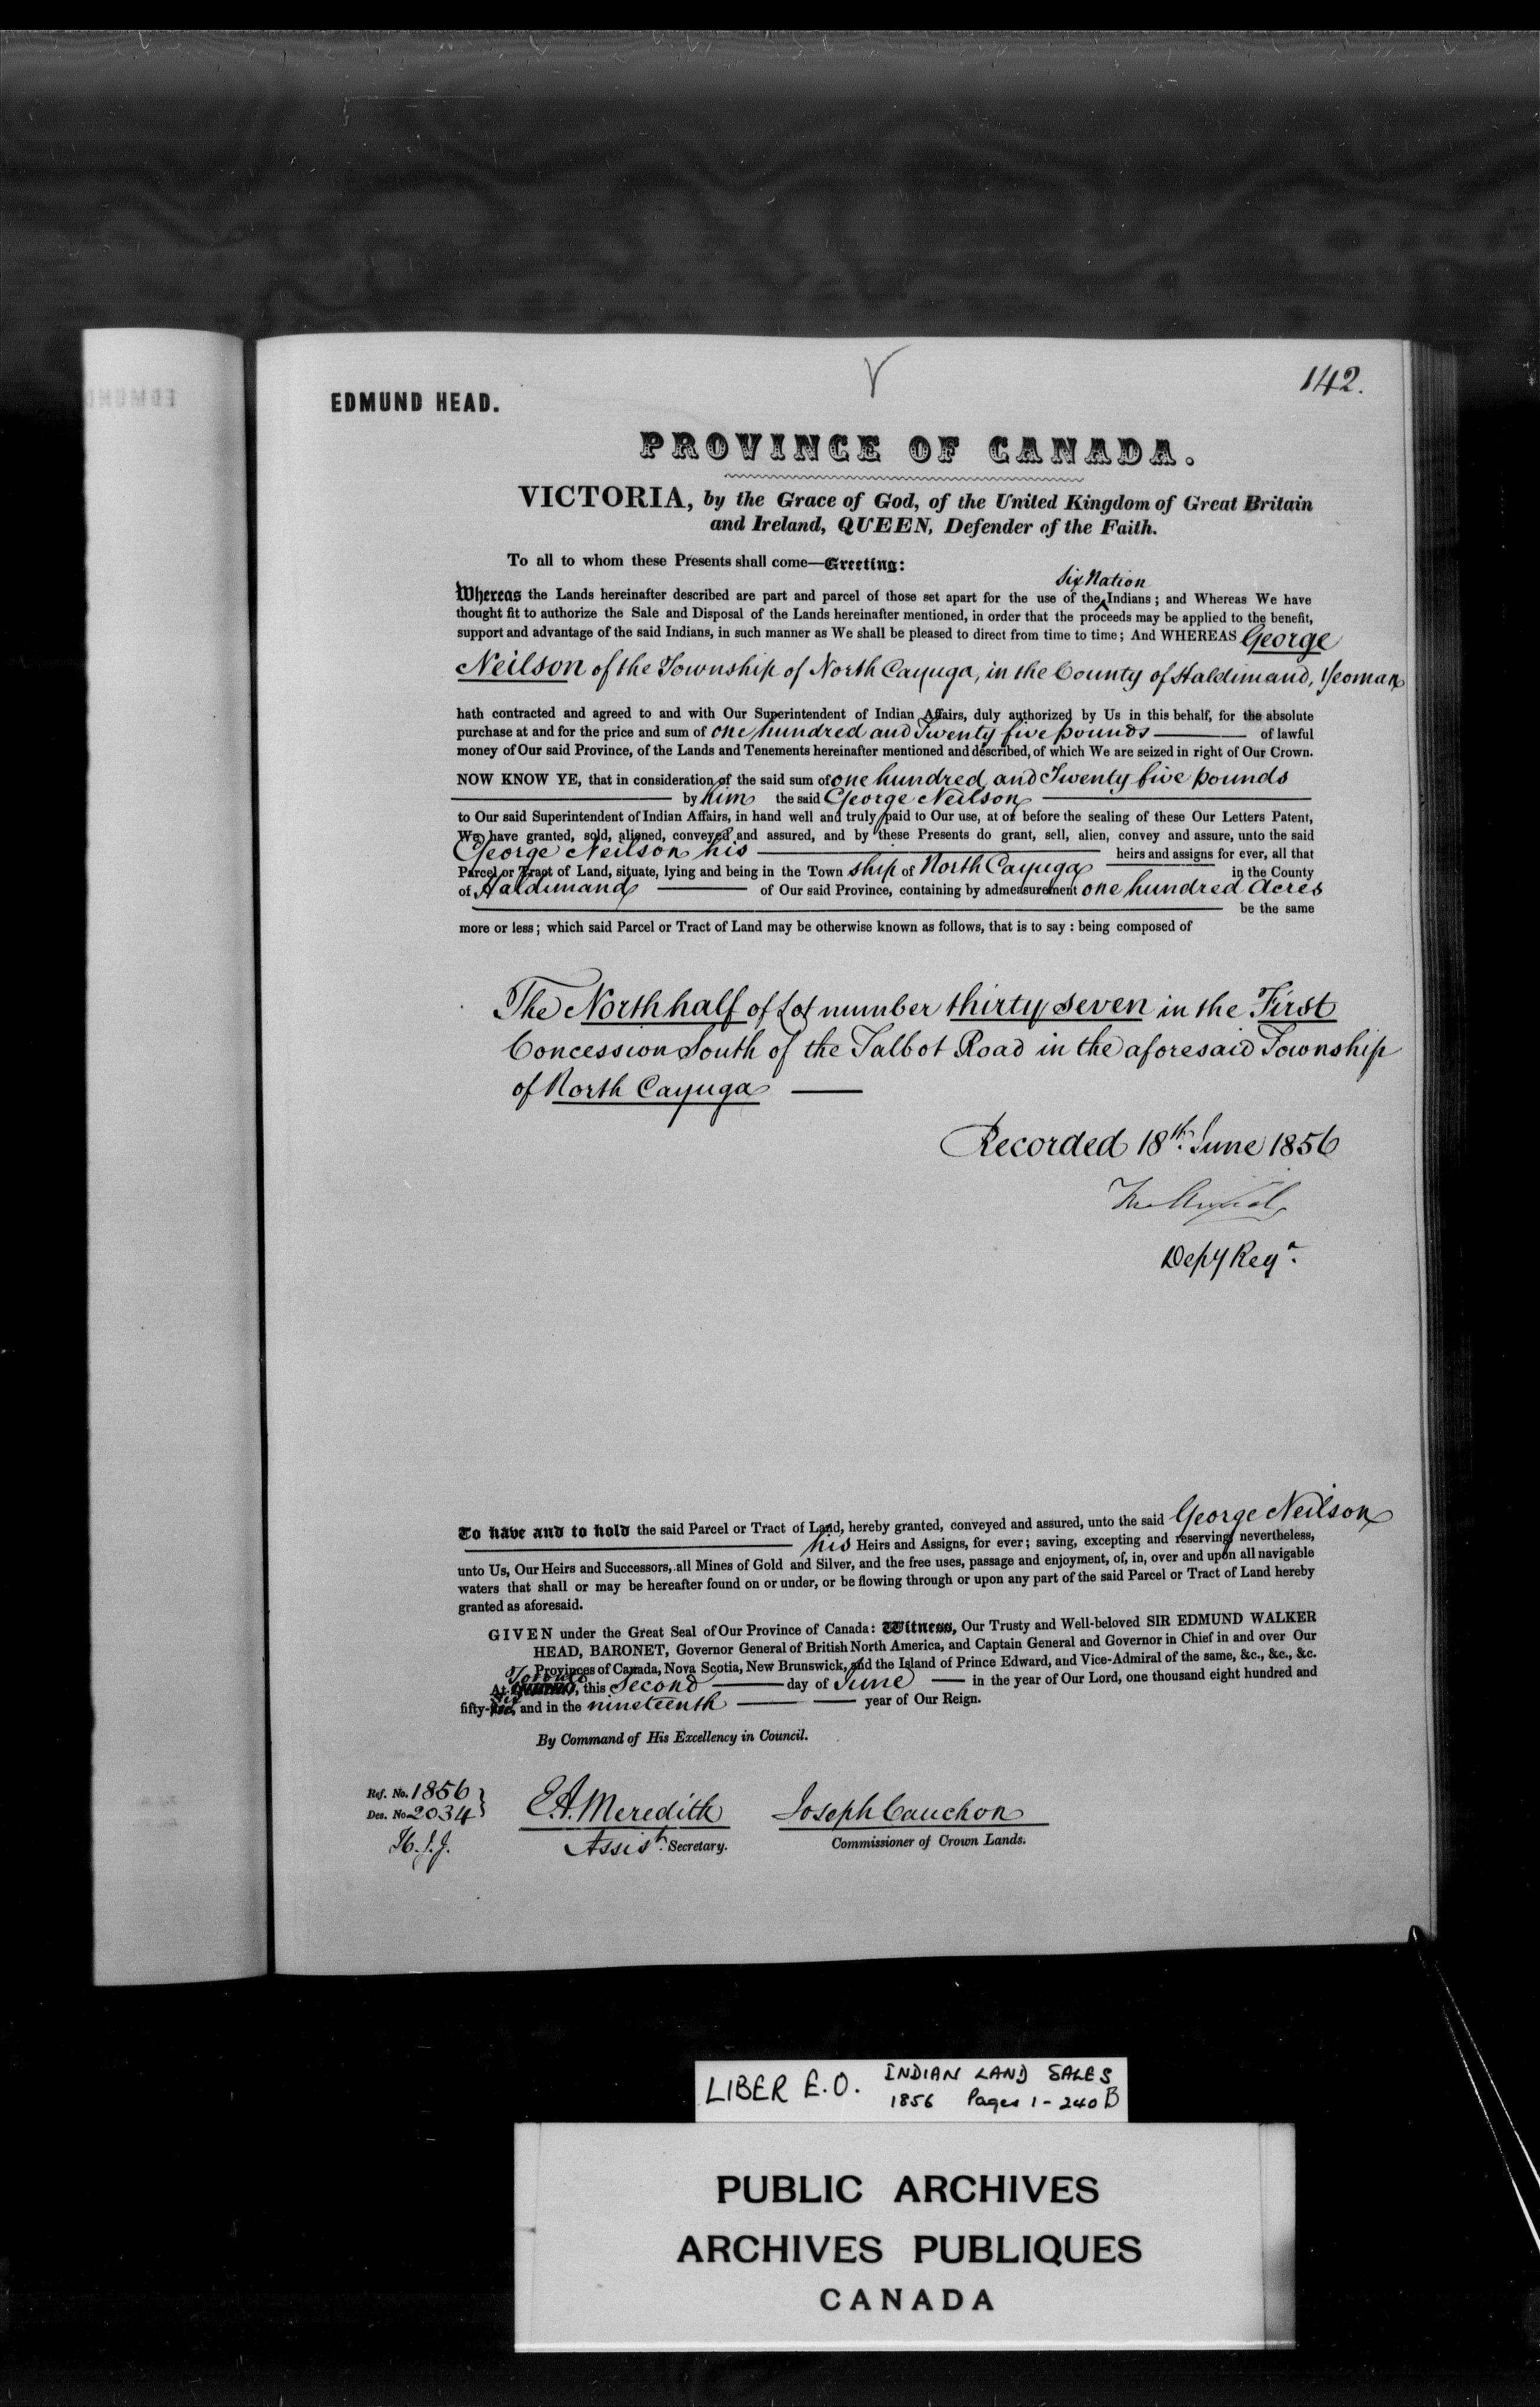 142.
EDMUND HEAD.
PROVINCE OF CANADA.
VICTORIA, by the Grace of God, of the United Kingdom of Great Britain
and Ireland, QUEEN, Defender of the Faith.
To all to whom these Presents shall come—Greeting:
Six Nation
Whereas the Lands hereinafter described are part and parcel of those set apart for the use of the Indians; and Whereas We have
thought fit to authorize the Sale and Disposal of the Lands hereinafter mentioned, in order that the proceeds may be applied to the benefit,
support and advantage of the said Indians, in such manner as We shall be pleased to direct from time to time; And WHEREAS George
Neilson of the Township of North Cayuga, in the County of Haldimand, Yeoman
hath contracted and agreed to and with Our Superintendent of Indian Affairs, duly authorized by Us in this behalf, for the absolute
purchase at and for the price and sum of one hundred and Twenty five pounds of lawful
money of Our said Province, of the Lands and Tenements hereinafter mentioned and described, of which We are seized in right of Our Crown.
NOW KNOW YE, that in consideration of the said sum of one hundred and Twenty five pounds
by him the said George Neilson
to Our said Superintendent of Indian Affairs, in hand well and truly paid to Our use, at or before the sealing of these Our Letters Patent,
We have granted, sold, aliened, conveyed and assured, and by these Presents do grant, sell, alien, convey and assure, unto the said
George Neilson his heirs and assigns for ever, all that
Parcel or Tract of Land, situate, lying and being in the Town ship of North Cayuga in the County
of Haldimand of Our said Province, containing by admeasurement one hundred Acres
be the same
more or less; which said Parcel or Tract of Land may be otherwise known as follows, that is to say: being composed of
The North half of Lot number thirty seven in the First
Concession South of the Talbot Road in the aforesaid Township
of North Cayuga
Recorded 18th. June 1856
Depy Regr.
To have and to hold the said Parcel or Tract of Land, hereby granted, conveyed and assured, unto the said George Neilson
his Heirs and Assigns, for ever; saving, excepting and reserving, nevertheless,
unto Us, Our Heirs and Successors, all Mines of Gold and Silver, and the free uses, passage and enjoyment, of, in, over and upon all navigable
waters that shall or may be hereafter found on or under, or be flowing through or upon any part of the said Parcel or Tract of Land hereby
granted as aforesaid.
GIVEN under the Great Seal of Our Province of Canada: Witness, Our Trusty and Well-beloved SIR EDMUND WALKER
HEAD, BARONET, Governor General of British North America, and Captain General and Governor in Chief in and over Our
Provinces of Canada, Nova Scotia, New Brunswick, and the Island of Prince Edward, and Vice-Admiral of the same, &c., &c., &c.
Toronto
At QUEBEC, this Second day of June in the year of Our Lord, one thousand eight hundred and
Six
fifty- and in the nineteenth year of Our Reign.
By Command of His Excellency in Council.
Ref. No. 1856
Des. No. 2034
H.J.J.
E.A. Meredith
Assist. Secretary.
Joseph Cauchon
Commissioner of Crown Lands.
LIBER E.O. INDIAN LAND SALES
1856 Pages 1-240B
PUBLIC ARCHIVES
ARCHIVES PUBLIQUES
CANADA